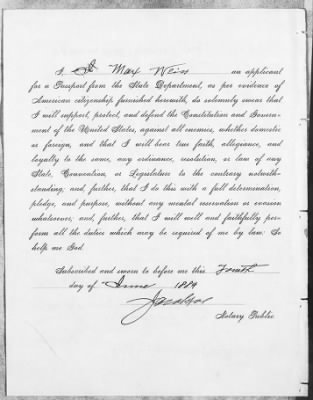 I, Max Weiss an applicant
for a Passport from the State Department, as per evidence of
American citizenship furnished herewith, do solemnly swear that
I will support, protect, and defend the Constitution and Govern-
ment of the United States, against all enemies, whether domestic
or foreign, and that I will bear true faith, allegiance, and
loyalty to the same, any ordinance, resolution, or law of any
State, Convention, or Legislature to the contrary notwith-
standing; and further, that I do this with a full determination,
pledge, and purpose, without any mental reservation or evasion
whatsoever; and, further, that I will well and faithfully per-
form all the duties which may be required of me by law: So
help me God.
Subscribed and sworn to before me this Fourth
day of June 1889
Notary Public